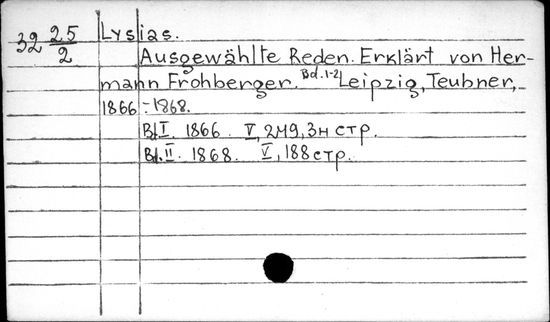 32 25/2
Lysias.
Ausgewählte Reden. Erklärt von Her-
mann Frohberger. Bd. 1-2 Leipzig, Teubner,
1866-1868.
Bd. I. 1866. V, 249, 3н стр.
Bd. II. 1868. V, 188 стр.